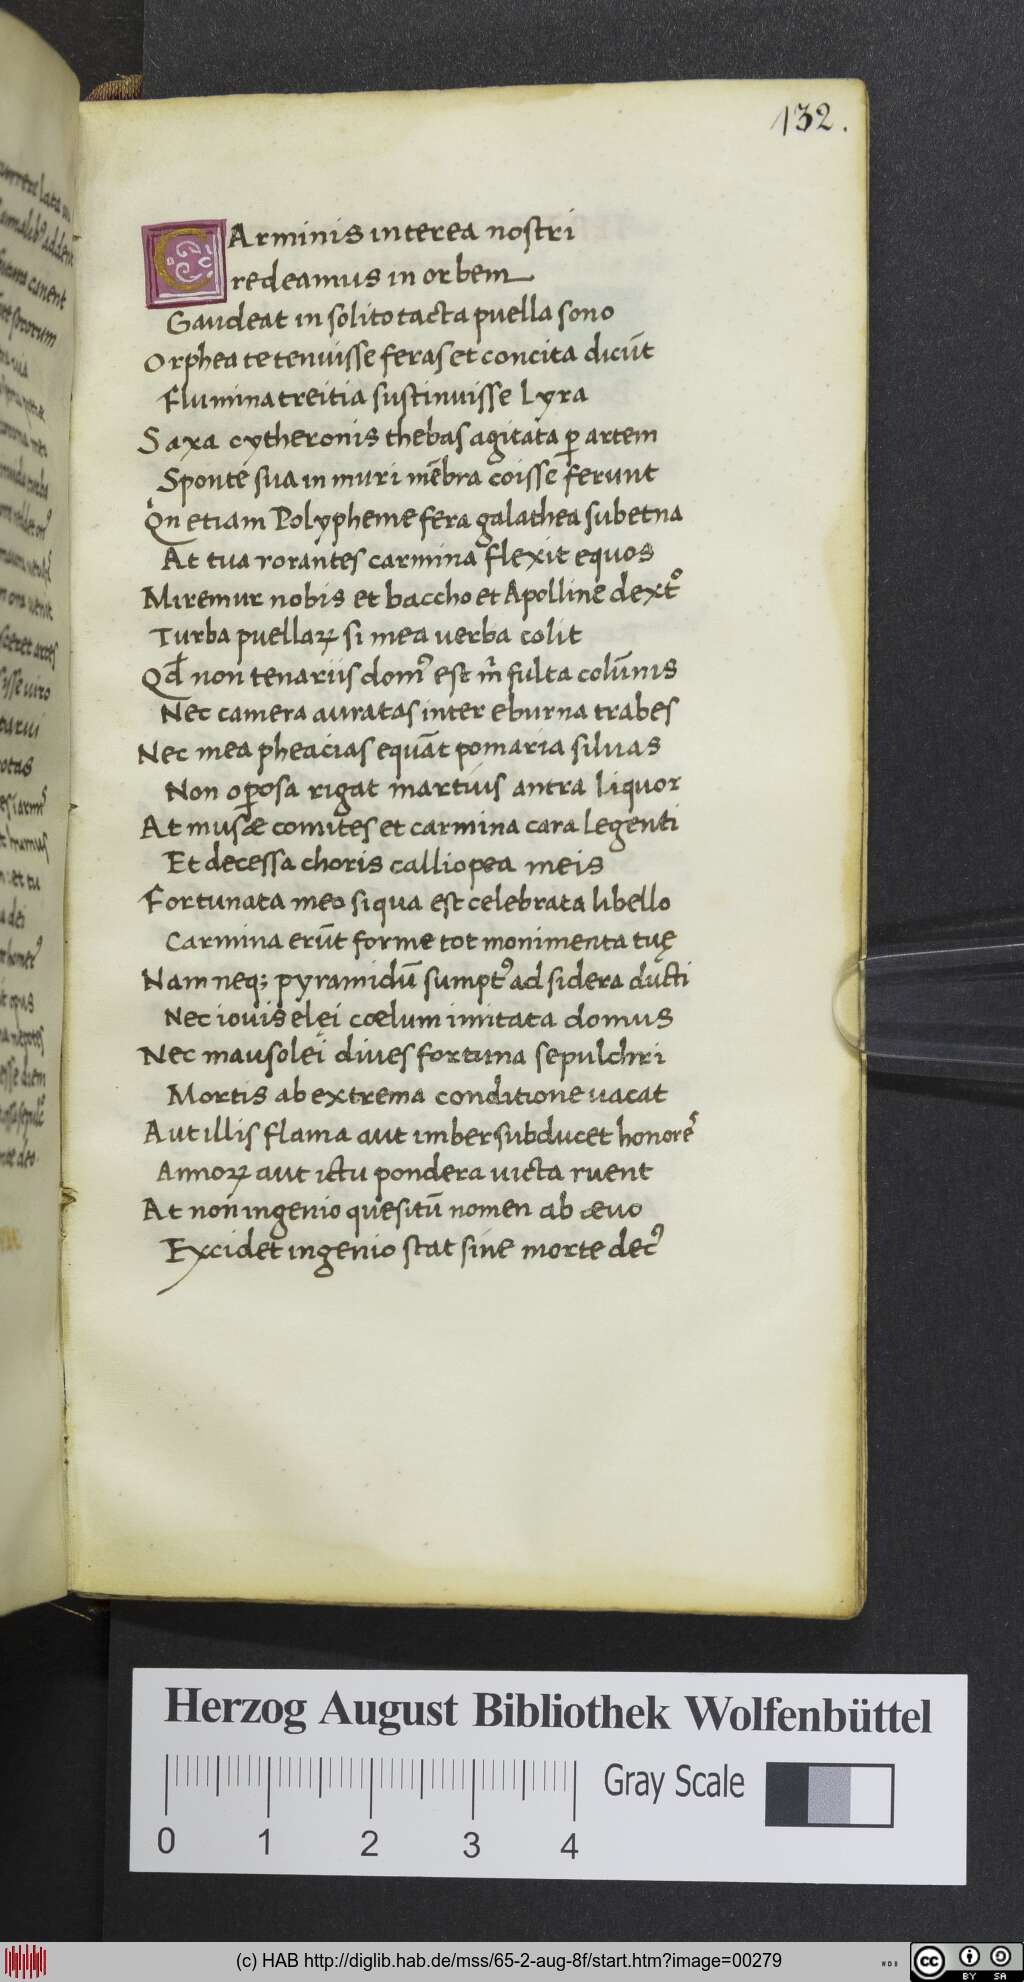 132.
Carminis interea nostri
redeamus in orbem
Gaudeat in solito tacta puella sono
Orphea te tenuisse feras et concita dicūt
Flumina treitia sustinuisse lyra
Saxa cytheronis thebas agitata ꝑ artem
Sponte sua in muri mēbra coisse ferunt
Qͥn etiam Polypheme fera galathea sub etna
At tua rorantes carmina flexit equos
Miremur nobis et baccho et Apolline dextͦ
Turba puellaꝝ si mea uerba colit
Qd̄ non tenariis domꝰ est mͥ fulta colūnis
Nec camera auratas inter eburna trabes
Nec mea pheacias equāt pomaria siluas
Non oꝑosa rigat martius antra liquor
At musæ comites et carmina cara legenti
Et decessa choris calliopea meis
Fortunata meo siqua est celebrata libello
Carmina erūt forme tot monimenta tuę
Nam neq; pyramidū sumptꝰ ad sidera ducti
Nec iouis elęi cœlum imitata domus
Nec mausoleį diues fortuna sepulchri
Mortis ab extrema conditione uacat
Aut illis flama aut imber subducet honorēs
Annoꝝ aut ictu pondera uicta ruent
At non ingenio quesitū nomen ab æuo
Excidet ingenio stat sine morte decꝰ
Herzog August Bibliothek Wolfenbüttel
Gray Scale
0 1 2 3 4
(c) HAB http://diglib.hab.de/mss/65-2-aug-8f/start.htm?image=00279
cc BY SA